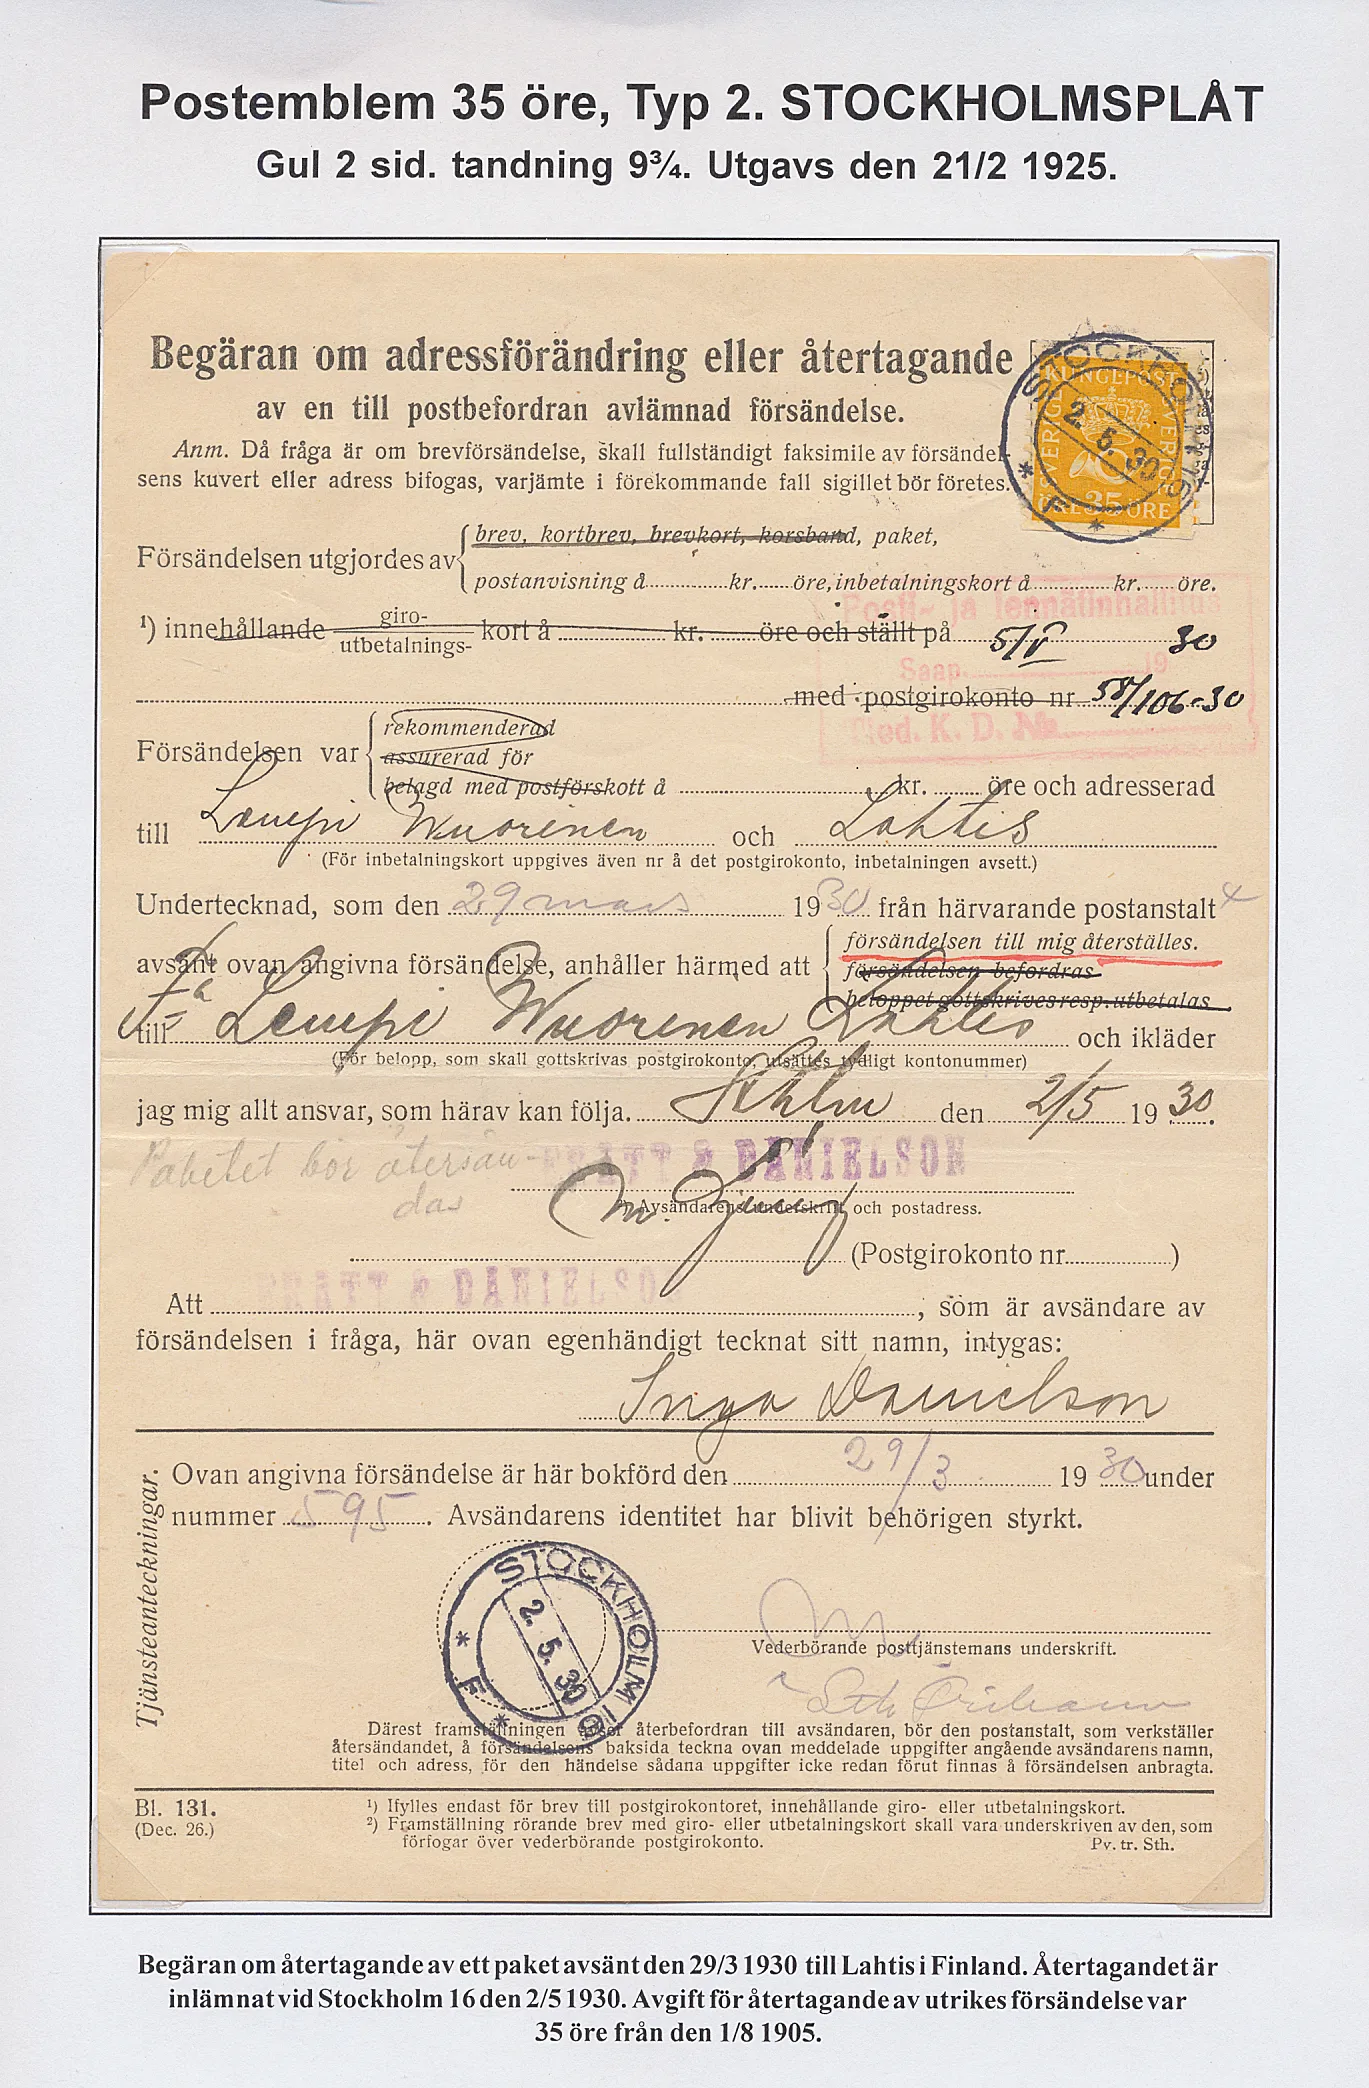 Postemblem 35 öre, Typ 2. STOCKHOLMSPLÅT
Gul 2 sid. tandning 9¾. Utgavs den 21/2 1925.
Begäran om adressförändring eller återtagande
av en till postbefordran avlämnad försändelse.
Anm. Då fråga är om brevförsändelse, skall fullständigt faksimile av försändel-
sens kuvert eller adress bifogas, varjämte i förekommande fall sigillet bör företes.
KUNGL.POST
SVERIGE SVERIGE
ÖRE 35 ÖRE
STOCKHOLM 16
2. 5. 30
* F *
Försändelsen utgjordes av
brev, kortbrev, brevkort, korsband, paket,
postanvisning å kr. öre, inbetalningskort å kr. öre.
Posti- ja lennätinhallitus
¹) innehållande giro- utbetalnings- kort å kr. öre och ställt på 5/V 30
Saap. 19
med postgirokonto nr 58/106-30
Ned. K. D. No
Försändelsen var
rekommenderad
assurerad för
belagd med postförskott å kr. öre och adresserad
till Lempi Wuorinen och Lahtis
(För inbetalningskort uppgives även nr å det postgirokonto, inbetalningen avsett.)
Undertecknad, som den 29 mars 1930 från härvarande postanstalt
avsänt ovan angivna försändelse, anhåller härmed att
försändelsen till mig återställes.
försändelsen befordras
beloppet gottskrives resp. utbetalas
till Fa Lempi Wuorinen Lahtis och ikläder
(För belopp, som skall gottskrivas postgirokonto, utsättes tydligt kontonummer)
jag mig allt ansvar, som härav kan följa. Sthlm den 2/5 1930.
Paketet bör återsän-
das
PRATT & DANIELSON
²) Avsändarens underskrift och postadress.
(Postgirokonto nr )
PRATT & DANIELSON
Att , som är avsändare av
försändelsen i fråga, här ovan egenhändigt tecknat sitt namn, intygas:
Inga Danielson
Tjänsteanteckningar.
Ovan angivna försändelse är här bokförd den 29/3 1930 under
nummer 595. Avsändarens identitet har blivit behörigen styrkt.
STOCKHOLM 16
2. 5. 30
* F *
Vederbörande posttjänstemans underskrift.
Därest framställningen avser återbefordran till avsändaren, bör den postanstalt, som verkställer
återsändandet, å försändelsens baksida teckna ovan meddelade uppgifter angående avsändarens namn,
titel och adress, för den händelse sådana uppgifter icke redan förut finnas å försändelsen anbragta.
Bl. 131.
(Dec. 26.)
¹) Ifylles endast för brev till postgirokontoret, innehållande giro- eller utbetalningskort.
²) Framställning rörande brev med giro- eller utbetalningskort skall vara underskriven av den, som
förfogar över vederbörande postgirokonto.
Pv. tr. Sth.
Begäran om återtagande av ett paket avsänt den 29/3 1930 till Lahtis i Finland. Återtagandet är
inlämnat vid Stockholm 16 den 2/5 1930. Avgift för återtagande av utrikes försändelse var
35 öre från den 1/8 1905.